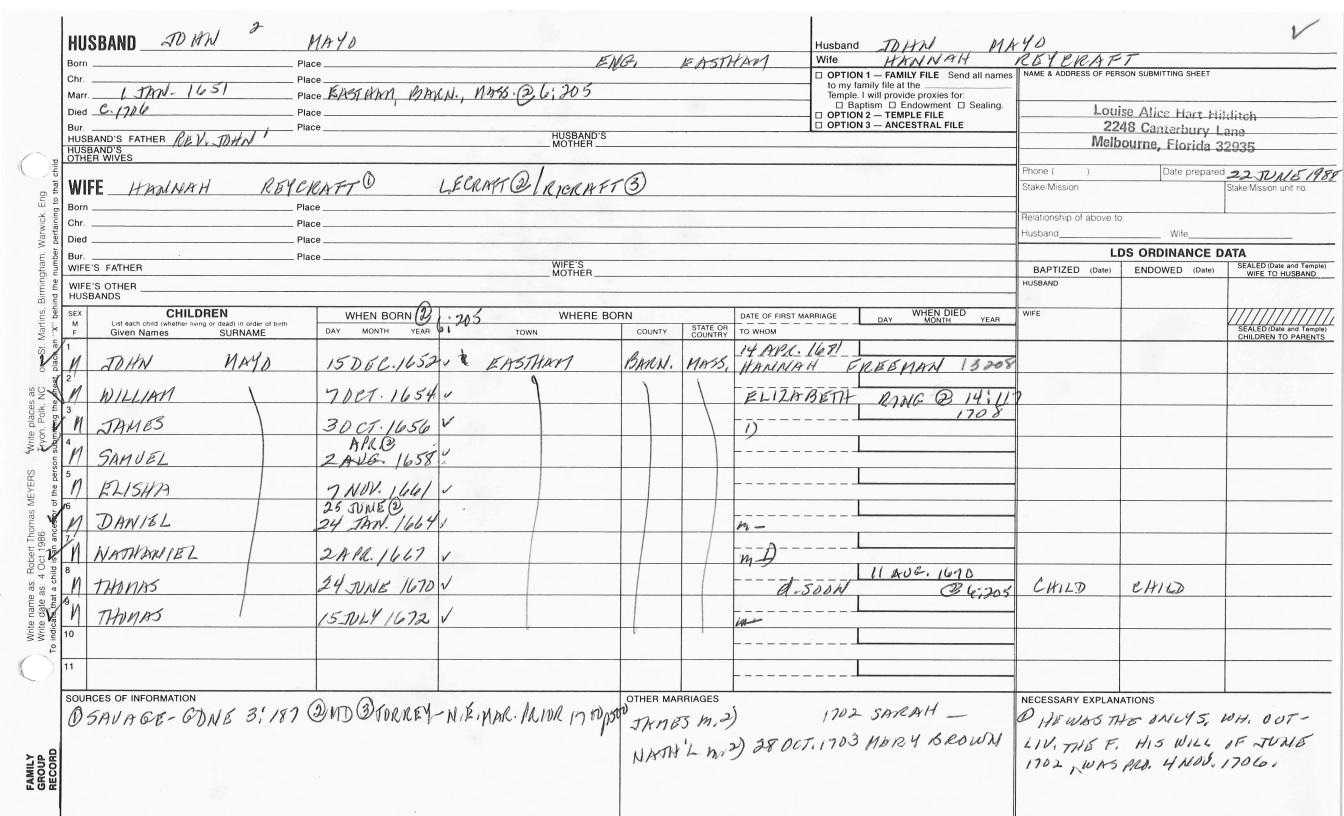 HUSBAND JOHN 2 MAYO
Born Place ENG. EASTHAM
Chr. Place
Marr. 1 JAN. 1651 Place EASTHAM, BARN., MASS. ② 6:205
Died C. 1706 Place
Bur. Place
HUSBAND'S FATHER REV. JOHN 1 HUSBAND'S MOTHER
HUSBAND'S OTHER WIVES
Husband JOHN MAYO
Wife HANNAH REYCRAFT
☐ OPTION 1 — FAMILY FILE Send all names
to my family file at the
Temple. I will provide proxies for:
☐ Baptism ☐ Endowment ☐ Sealing.
☐ OPTION 2 — TEMPLE FILE
☐ OPTION 3 — ANCESTRAL FILE
NAME & ADDRESS OF PERSON SUBMITTING SHEET
Louise Alice Hart Hilditch
2248 Canterbury Lane
Melbourne, Florida 32935
Phone ( ) Date prepared 22 JUNE 1988
Stake/Mission Stake/Mission unit no.
Relationship of above to:
Husband Wife
WIFE HANNAH REYCRAFT① LECRAFT②/RICRAFT③
Born Place
Chr. Place
Died Place
Bur. Place
WIFE'S FATHER WIFE'S MOTHER
WIFE'S OTHER HUSBANDS
LDS ORDINANCE DATA
BAPTIZED (Date) ENDOWED (Date) SEALED (Date and Temple) WIFE TO HUSBAND
HUSBAND
WIFE
SEALED (Date and Temple) CHILDREN TO PARENTS
SEX M F
CHILDREN
List each child (whether living or dead) in order of birth
Given Names SURNAME
WHEN BORN ② 6:205
DAY MONTH YEAR
WHERE BORN
TOWN COUNTY STATE OR COUNTRY
DATE OF FIRST MARRIAGE
TO WHOM
WHEN DIED
DAY MONTH YEAR
1 M JOHN MAYO 15 DEC. 1652 ✓ EASTHAM BARN. MASS. 14 APR. 1681
HANNAH FREEMAN 13208
2 M WILLIAM 7 OCT. 1654 ✓ ELIZABETH RING ② 14:117
1708
3 M JAMES 3 OCT. 1656 ✓ 1)
APR ②
4 M SAMUEL 2 AUG. 1658 ✓
5 M ELISHA 7 NOV. 1661 ✓
25 JUNE ②
6 M DANIEL 24 JAN. 1664 ✓ m —
7 M NATHANIEL 2 APR. 1667 ✓ m 1)
11 AUG. 1670
8 M THOMAS 24 JUNE 1670 ✓ d. SOON ② 6:205 CHILD CHILD
9 M THOMAS 15 JULY 1672 ✓ m —
10
11
SOURCES OF INFORMATION
① SAVAGE - GDNE 3:187 ② MD ③ TORREY - N.E. MAR. PRIOR 1700
OTHER MARRIAGES
JAMES m. 2) 1702 SARAH —
NATH'L m. 2) 28 OCT. 1703 MARY BROWN
NECESSARY EXPLANATIONS
① HE WAS THE ONLY S. WH. OUT-
LIV. THE F. HIS WILL OF JUNE
1702, WAS PRO. 4 NOV. 1706.
Write name as Robert Thomas MEYERS
Write date as 4 Oct 1986
Write places as Tryon, Polk, NC
or St. Martins, Birmingham, Warwick, Eng
To indicate that a child is an ancestor of the person submitting the sheet, place an "X" behind the number pertaining to that child
FAMILY GROUP RECORD